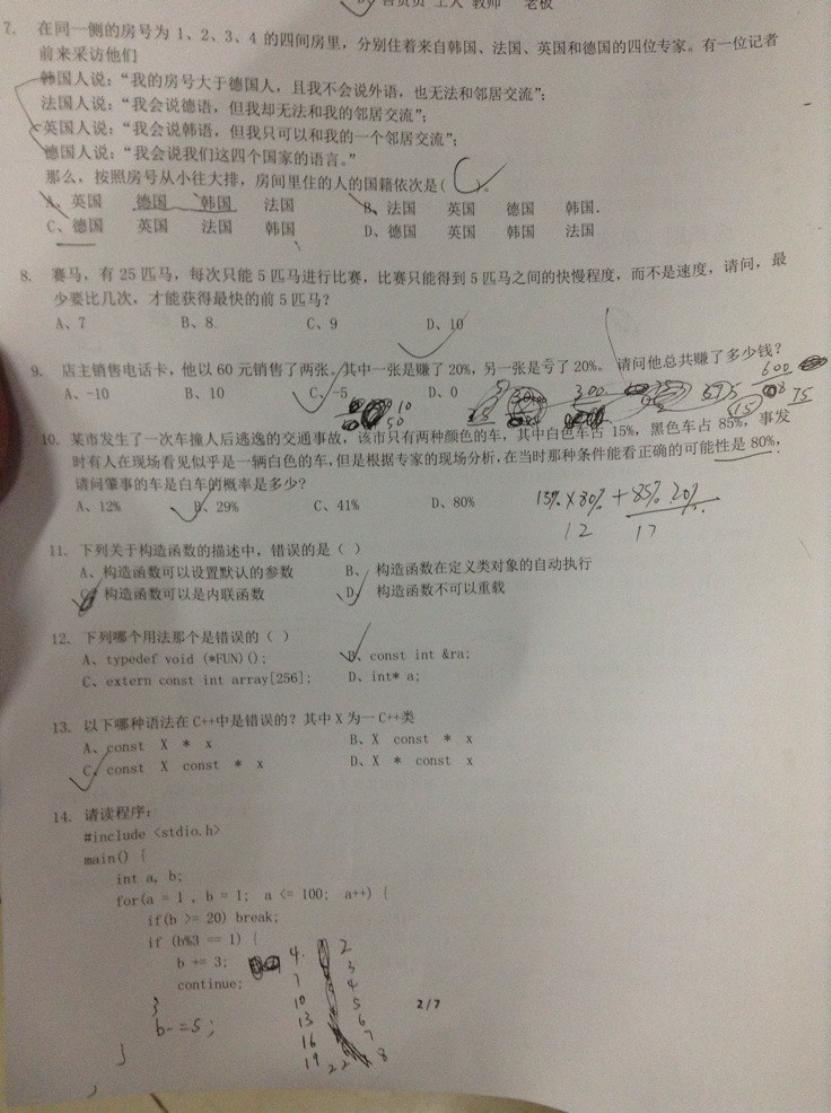 营员员 工人 教师 老板
7. 在同一侧的房号为 1、2、3、4 的四间房里，分别住着来自韩国、法国、英国和德国的四位专家。有一位记者
前来采访他们
韩国人说：“我的房号大于德国人，且我不会说外语，也无法和邻居交流”；
法国人说：“我会说德语，但我却无法和我的邻居交流”；
英国人说：“我会说韩语，但我只可以和我的一个邻居交流”；
德国人说：“我会说我们这四个国家的语言。”
那么，按照房号从小往大排，房间里住的人的国籍依次是( C )。
A、英国 德国 韩国 法国 B、法国 英国 德国 韩国.
C、德国 英国 法国 韩国 D、德国 英国 韩国 法国
8. 赛马，有 25 匹马，每次只能 5 匹马进行比赛，比赛只能得到 5 匹马之间的快慢程度，而不是速度，请问，最
少要比几次，才能获得最快的前 5 匹马？
A、7 B、8 C、9 D、10
9. 店主销售电话卡，他以 60 元销售了两张。其中一张是赚了 20%，另一张是亏了 20%。请问他总共赚了多少钱？
600
A、-10 B、10 C、-5 D、0
300 375 8 75
10 15
50
10. 某市发生了一次车撞人后逃逸的交通事故，该市只有两种颜色的车，其中白色车占 15%，黑色车占 85%，事发
时有人在现场看见似乎是一辆白色的车，但是根据专家的现场分析，在当时那种条件能看正确的可能性是 80%，
请问肇事的车是白车的概率是多少？
A、12% B、29% C、41% D、80%
15% X 80% + 85% 20%
12 17
11. 下列关于构造函数的描述中，错误的是（ ）
A、构造函数可以设置默认的参数 B、构造函数在定义类对象的自动执行
C、构造函数可以是内联函数 D、构造函数不可以重载
12. 下列哪个用法那个是错误的（ ）
A、typedef void (*FUN)(); B、const int &ra;
C、extern const int array[256]; D、int* a;
13. 以下哪种语法在 C++中是错误的？其中 X 为一 C++类
A、const X * x B、X const * x
C、const X const * x D、X * const x
14. 请读程序：
#include <stdio.h>
main() {
int a, b;
for(a = 1 , b = 1; a <= 100; a++) {
if(b >= 20) break;
if (b%3 == 1) {
b += 3;
continue;
}
b-=5;
}
}
4 2
7 3
10 4
13 5
16 6
19 7
22 8
2/7